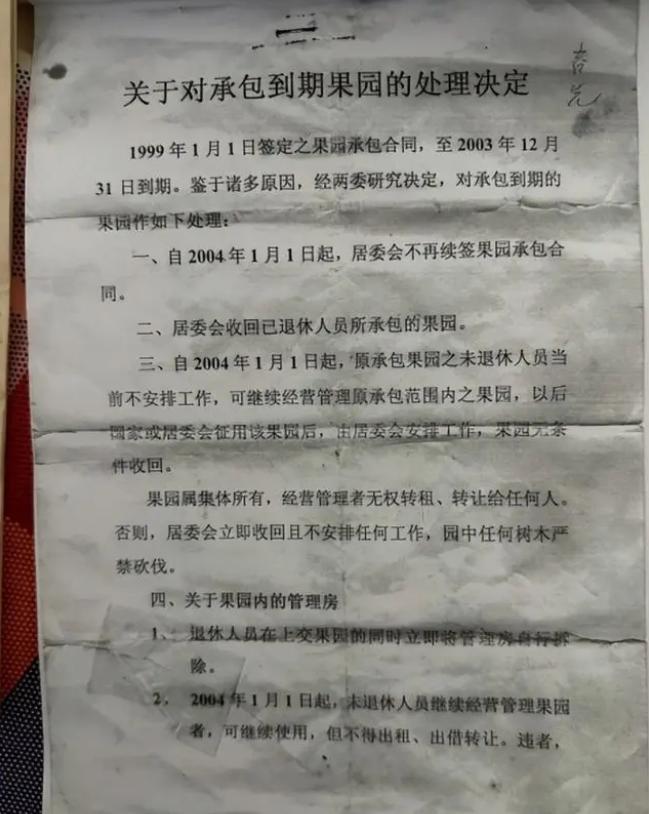 关于对承包到期果园的处理决定
1999年1月1日签定之果园承包合同，至2003年12月
31日到期。鉴于诸多原因，经两委研究决定，对承包到期的
果园作如下处理：
一、自2004年1月1日起，居委会不再续签果园承包合
同。
二、居委会收回已退休人员所承包的果园。
三、自2004年1月1日起，原承包果园之未退休人员当
前不安排工作，可继续经营管理原承包范围内之果园，以后
国家或居委会征用该果园后，由居委会安排工作，果园无条
件收回。
果园属集体所有，经营管理者无权转租、转让给任何人。
否则，居委会立即收回且不安排任何工作，园中任何树木严
禁砍伐。
四、关于果园内的管理房
1、退休人员在上交果园的同时立即将管理房自行拆
除。
2、2004年1月1日起，未退休人员继续经营管理果园
者，可继续使用，但不得出租、出借转让。违者，